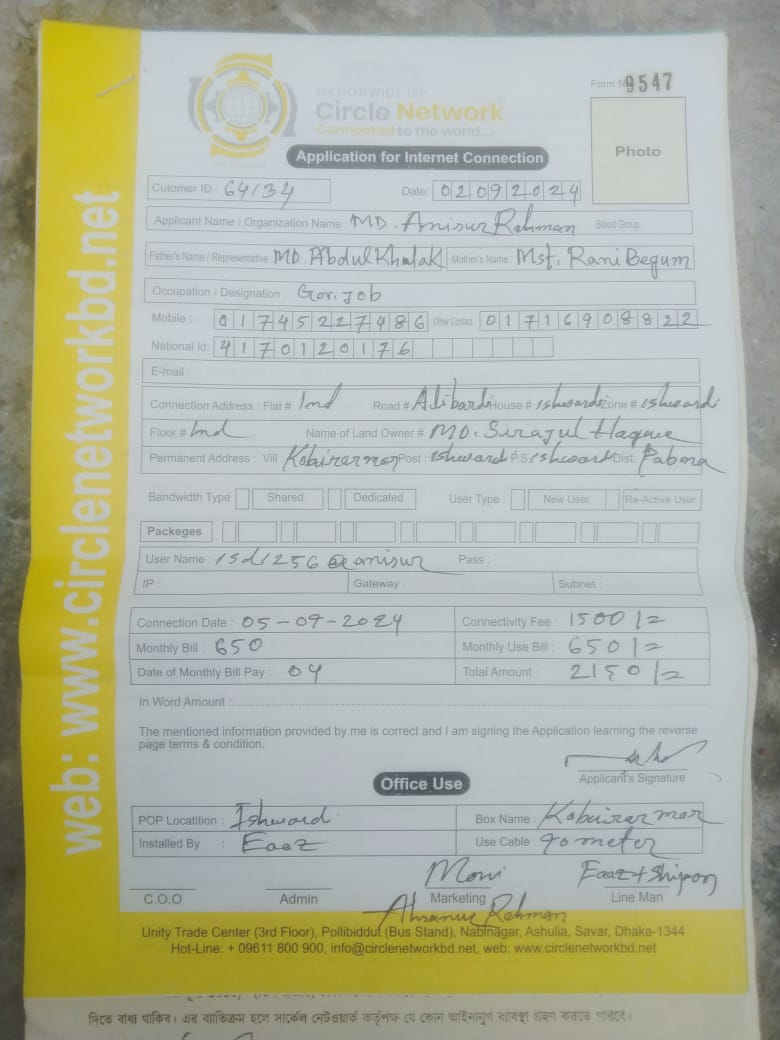 Form No 9547
NATIONWIDE ISP
Circle Network
Connected to the world....
Photo
Application for Internet Connection
Cutomer ID : 64134 Date: 02092024
Applicant Name / Organization Name : MD. Anisur Rahman Blood Group
Father's Name / Representative MD. Abdul Khalak Mother's Name : Mst. Rani Begum
Occupation / Designation : Gov. job
Mobile : 01745227486 Other Contact 01716908822
National Id: 4170120176
E-mail :
Connection Address : Flat # Road # Alibardi House # ishwardi Zone # ishwardi
Floor # Name of Land Owner # MD. Sirajul Haque
Permanent Address : Vill Kobirermor Post : ishwardi P.S ishwardi Dist: Pabna
Bandwidth Type Shared Dedicated User Type : New User Re-Active User
Packeges
User Name : isd1256@anisur Pass :
IP : Gateway : Subnet :
Connection Date : 05-09-2024 Connectivity Fee : 1500/=
Monthly Bill : 650 Monthly Use Bill : 650/=
Date of Monthly Bill Pay : 04 Total Amount : 2150/=
In Word Amount :
The mentioned information provided by me is correct and I am signing the Application learning the reverse
page terms & condition.
Applicant's Signature
Office Use
POP Locatition : Ishward Box Name : Kobirermor
Installed By : Eaaz Use Cable : 90 meter
Moni Eaaz + Shipon
C.O.O Admin Marketing Line Man
Rahman
Unity Trade Center (3rd Floor), Pollibiddut (Bus Stand), Nabinagar, Ashulia, Savar, Dhaka-1344
Hot-Line: + 09611 800 900, info@circlenetworkbd.net, web: www.circlenetworkbd.net
web: www.circlenetworkbd.net
দিতে বাধ্য থাকিব। এর ব্যতিক্রম হলে সার্কেল নেটওয়ার্ক কর্তৃপক্ষ যে কোন আইনানুগ ব্যবস্থা গ্রহণ করতে পারবে।